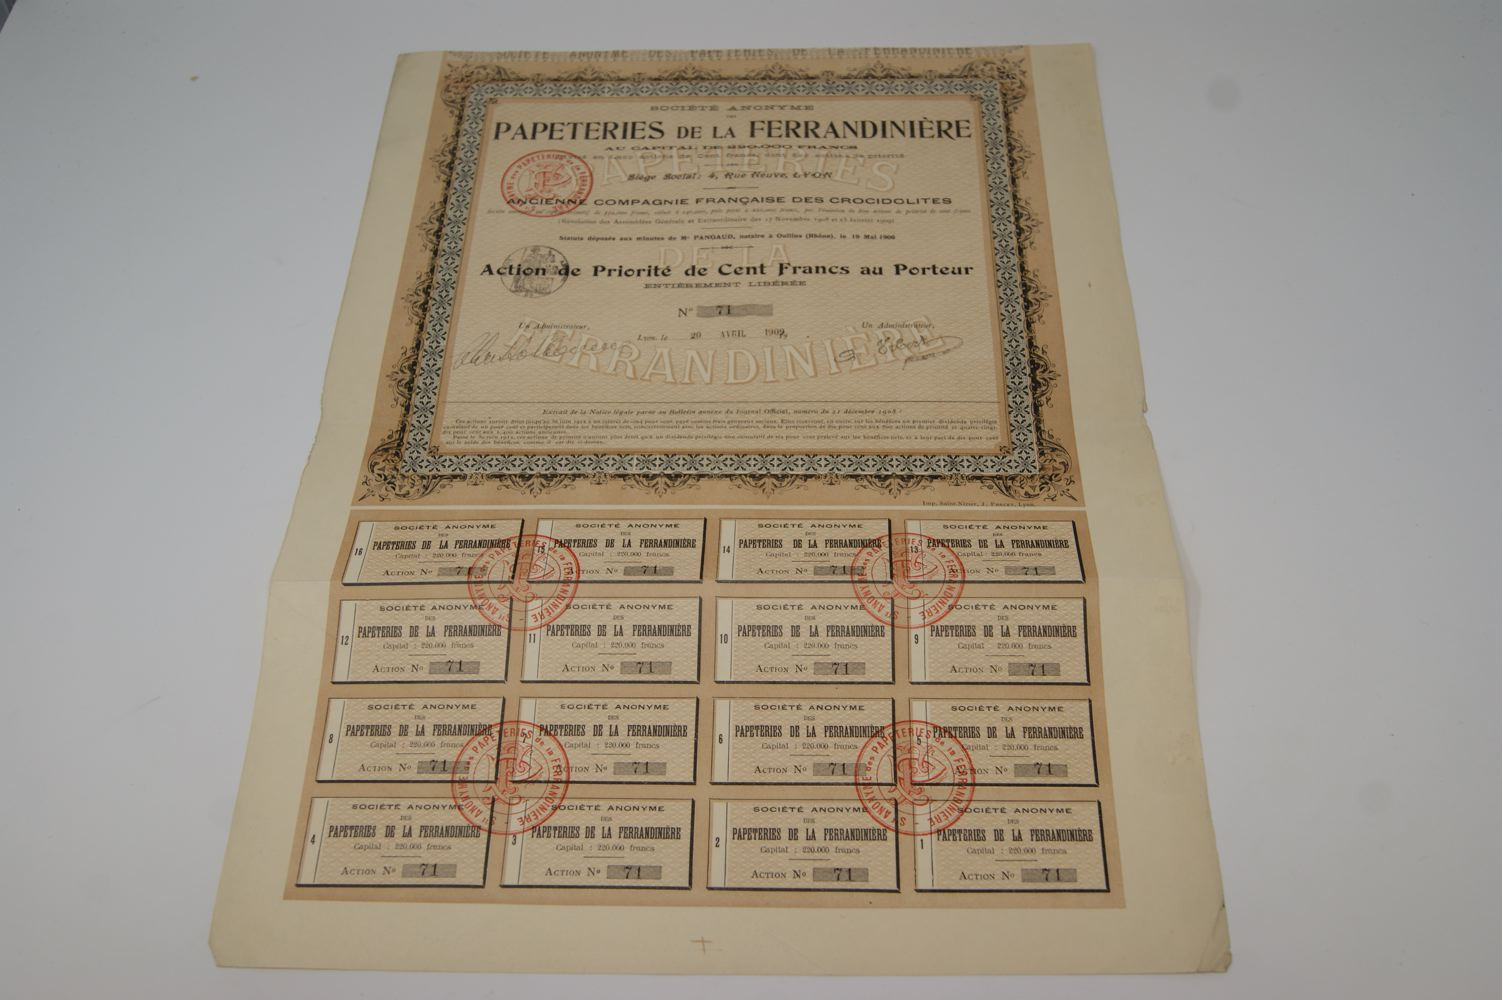 SOCIÉTÉ ANONYME DES PAPETERIES DE LA FERRANDINIÈRE
SOCIÉTÉ ANONYME
DES
PAPETERIES DE LA FERRANDINIÈRE
AU CAPITAL DE 220.000 FRANCS
Siège Social: 4, Rue Neuve, LYON
ANCIENNE COMPAGNIE FRANÇAISE DES CROCIDOLITES
(Résolution des Assemblées Générale et Extraordinaire des 17 Novembre 1908 et 23 Janvier 1909)
Statuts déposés aux minutes de Me PANGAUD, notaire à Oullins (Rhône), le 19 Mai 1906
Action de Priorité de Cent Francs au Porteur
ENTIÈREMENT LIBÉRÉE
No 71
Un Administrateur,
Lyon, le 20 AVRIL 1909,
Un Administrateur,
PAPETERIES
DE LA
FERRANDINIÈRE
Extrait de la Notice légale parue au Bulletin annexe du Journal Officiel, numéro du 21 décembre 1908 :
Imp. Saint-Nizier, J. Lyon.
16
SOCIÉTÉ ANONYME
DES
PAPETERIES DE LA FERRANDINIÈRE
Capital : 220.000 francs
ACTION No 71
15
SOCIÉTÉ ANONYME
DES
PAPETERIES DE LA FERRANDINIÈRE
Capital : 220.000 francs
ACTION No 71
14
SOCIÉTÉ ANONYME
DES
PAPETERIES DE LA FERRANDINIÈRE
Capital : 220.000 francs
ACTION No 71
13
SOCIÉTÉ ANONYME
DES
PAPETERIES DE LA FERRANDINIÈRE
Capital : 220.000 francs
ACTION No 71
12
SOCIÉTÉ ANONYME
DES
PAPETERIES DE LA FERRANDINIÈRE
Capital : 220.000 francs
ACTION No 71
11
SOCIÉTÉ ANONYME
DES
PAPETERIES DE LA FERRANDINIÈRE
Capital : 220.000 francs
ACTION No 71
10
SOCIÉTÉ ANONYME
DES
PAPETERIES DE LA FERRANDINIÈRE
Capital : 220.000 francs
ACTION No 71
9
SOCIÉTÉ ANONYME
DES
PAPETERIES DE LA FERRANDINIÈRE
Capital : 220.000 francs
ACTION No 71
8
SOCIÉTÉ ANONYME
DES
PAPETERIES DE LA FERRANDINIÈRE
Capital : 220.000 francs
ACTION No 71
7
SOCIÉTÉ ANONYME
DES
PAPETERIES DE LA FERRANDINIÈRE
Capital : 220.000 francs
ACTION No 71
6
SOCIÉTÉ ANONYME
DES
PAPETERIES DE LA FERRANDINIÈRE
Capital : 220.000 francs
ACTION No 71
5
SOCIÉTÉ ANONYME
DES
PAPETERIES DE LA FERRANDINIÈRE
Capital : 220.000 francs
ACTION No 71
4
SOCIÉTÉ ANONYME
DES
PAPETERIES DE LA FERRANDINIÈRE
Capital : 220.000 francs
ACTION No 71
3
SOCIÉTÉ ANONYME
DES
PAPETERIES DE LA FERRANDINIÈRE
Capital : 220.000 francs
ACTION No 71
2
SOCIÉTÉ ANONYME
DES
PAPETERIES DE LA FERRANDINIÈRE
Capital : 220.000 francs
ACTION No 71
1
SOCIÉTÉ ANONYME
DES
PAPETERIES DE LA FERRANDINIÈRE
Capital : 220.000 francs
ACTION No 71
Sté ANONYME des PAPETERIES de la FERRANDINIÈRE
Sté ANONYME des PAPETERIES de la FERRANDINIÈRE
Sté ANONYME des PAPETERIES de la FERRANDINIÈRE
Sté ANONYME des PAPETERIES de la FERRANDINIÈRE
Sté ANONYME des PAPETERIES de la FERRANDINIÈRE